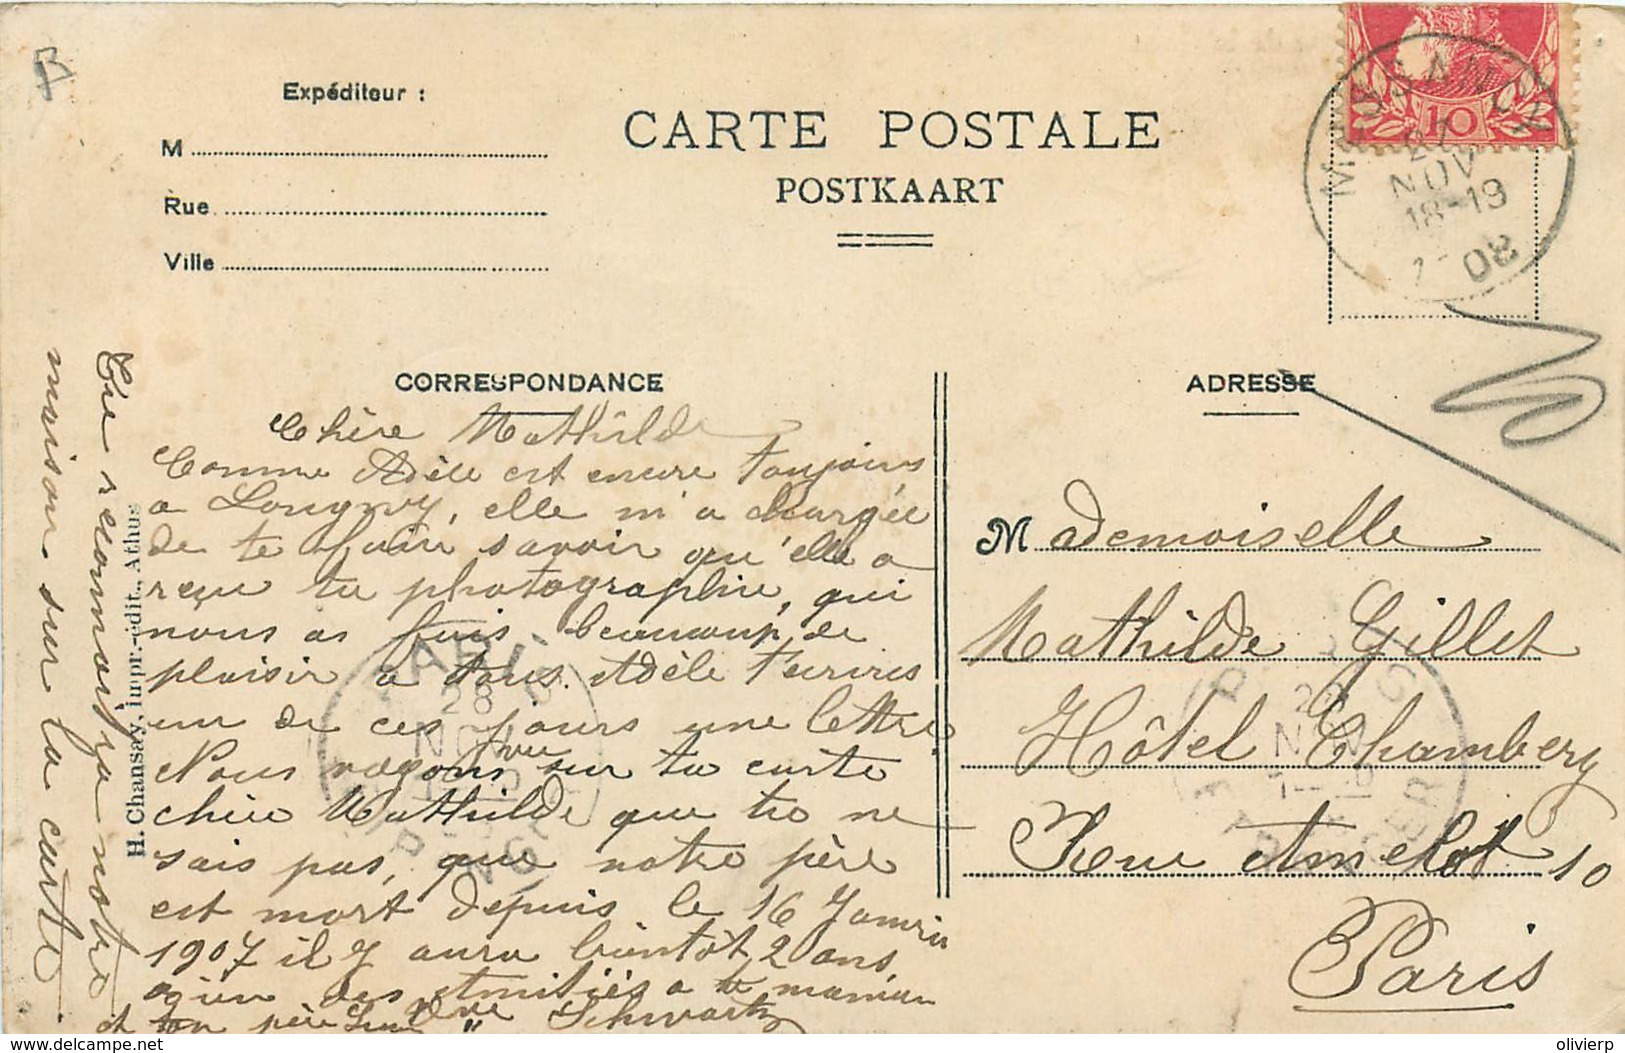 Expéditeur :
M
Rue
Ville
CARTE POSTALE
POSTKAART
10
MUSSON
27
NOV
18-19
08
CORRESPONDANCE
ADRESSE
Chère Mathilde
Comme Adèle est encore toujours
a Longwy, elle m'a chargée
de te fair savoir qu'elle a
reçu ta photographie, qui
nous as fais beaucoup de
plaisir a tous. Adèle t'ecriras
un de ces jours une lettre
Nous voyons sur ta carte
chère Mathilde que tu ne
sais pas, que notre père
est mort depuis le 16 Janvier
1907 il y aura bientôt 2 ans,
bien des Amitiés a ta maman
et ton père Schwartz
Tu reconnaitra notre
maison sur la carte
H. Chansay, impr.-édit., Athus
PARIS
28
NOV
Mademoiselle
Mathilde Gillet
Hôtel Chambery
Rue Amelot 10
Paris
delcampe.net
olivierp